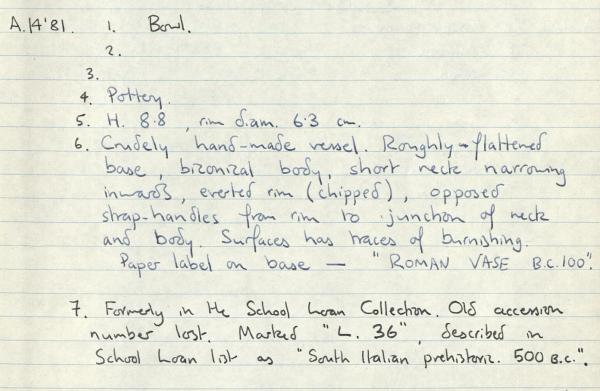 A.14'81. 1. Bowl.
2.
3.
4. Pottery.
5. H. 8.8 , rim diam. 6.3 cm.
6. Crudely hand-made vessel. Roughly-flattened
base, biconical body, short neck narrowing
inwards, everted rim (chipped), opposed
strap-handles from rim to junction of neck
and body. Surfaces has traces of burnishing.
Paper label on base — "ROMAN VASE B.C.100".
7. Formerly in the School Loan Collection. Old accession
number lost. Marked "L. 36", described in
School Loan list as "South Italian prehistoric. 500 B.C.".